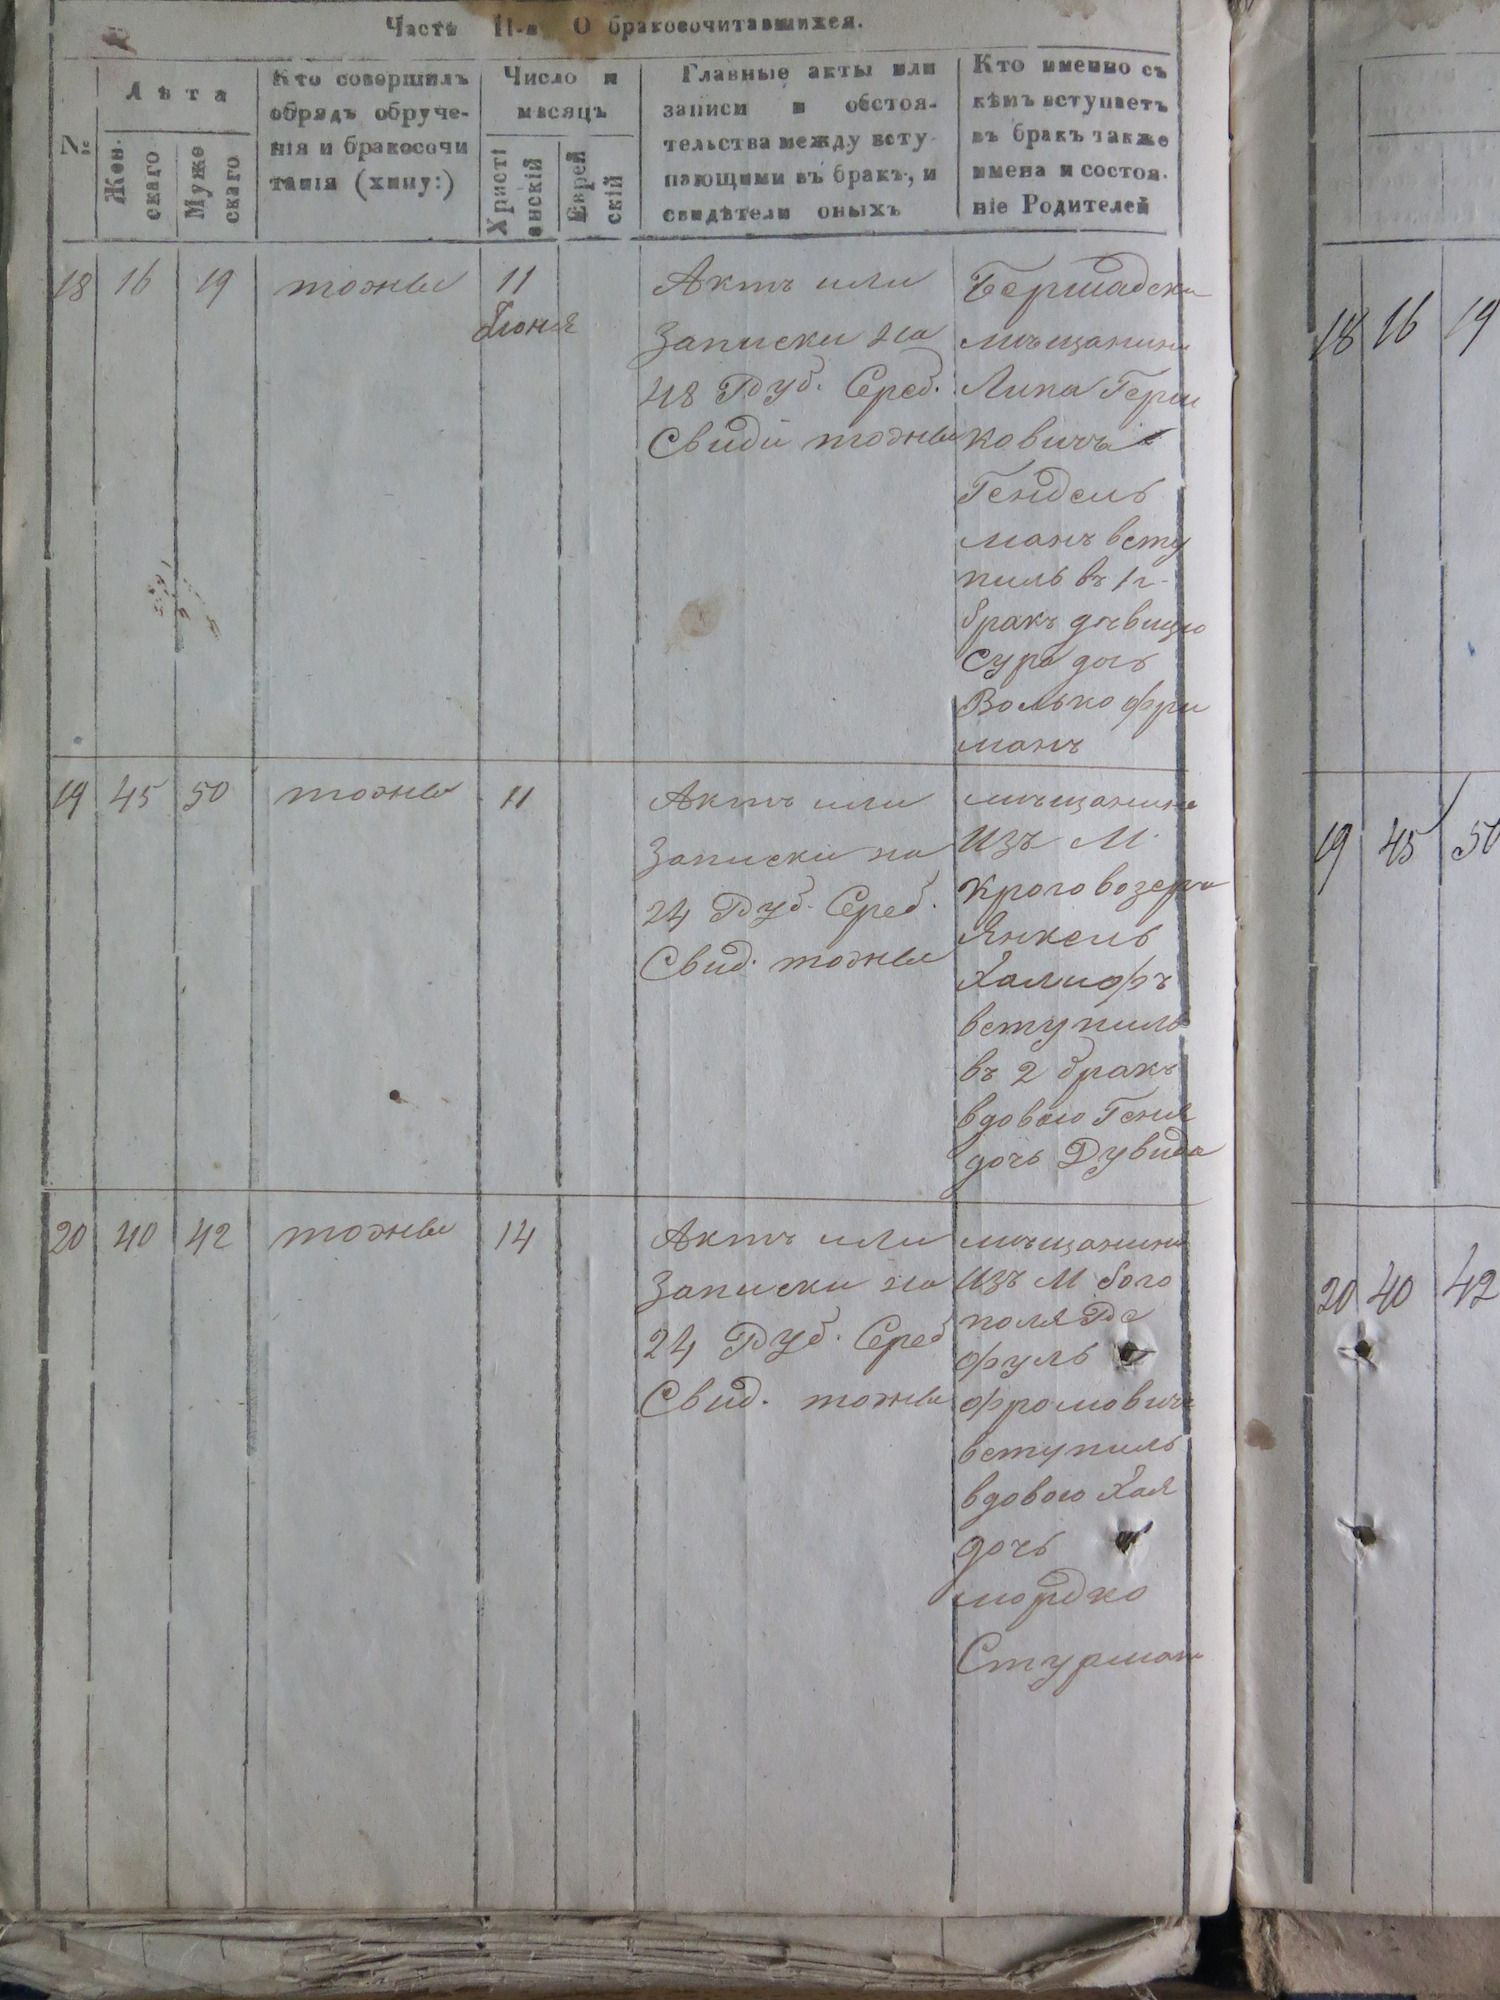 Часть II-я О бракосочитавшихся.
№
Лѣта
Жен-
скаго
Муже
скаго
Кто совершилъ
обрядъ обруче-
нія и бракосочи
танія (хипу:)
Число и
мѣсяцъ
Христі
анскій
Еврей
скій
Главные акты или
записи и обстоя-
тельства между всту
пающими въ бракъ, и
свидѣтели оныхъ
Кто именно съ
кѣмъ вступаетъ
въ бракъ также
имена и состоя-
ніе Родителей
18 16 19 тотже 11
Іюня
Актъ или
Записки на
48 Руб. Сереб.
Свиди тотже
Бершадски
мѣщанинъ
Липа Герш
ковичъ
Гендель
манъ всту
пилъ въ 1й
бракъ дѣвицю
Сура дочь
Волько Фри
манъ
19 45 50 тотже 11
Актъ или
Записки на
24 Руб. Сереб.
Свид. тотже
мѣщанинъ
Изъ М.
Кривоозера
Янкель
Халифъ
вступилъ
въ 2 бракъ
вдовою Геня
дочь Дувида
20 40 42 тотже 14
Актъ или
Записки на
24 Руб. Сереб
Свид. тотже
мѣщанинъ
Изъ М Бого
поля Ре
фуль
Фромовичъ
вступилъ
вдовою Хая
дочь
Мордко
Стурманъ
18 16 19
19 45 50
20 40 42